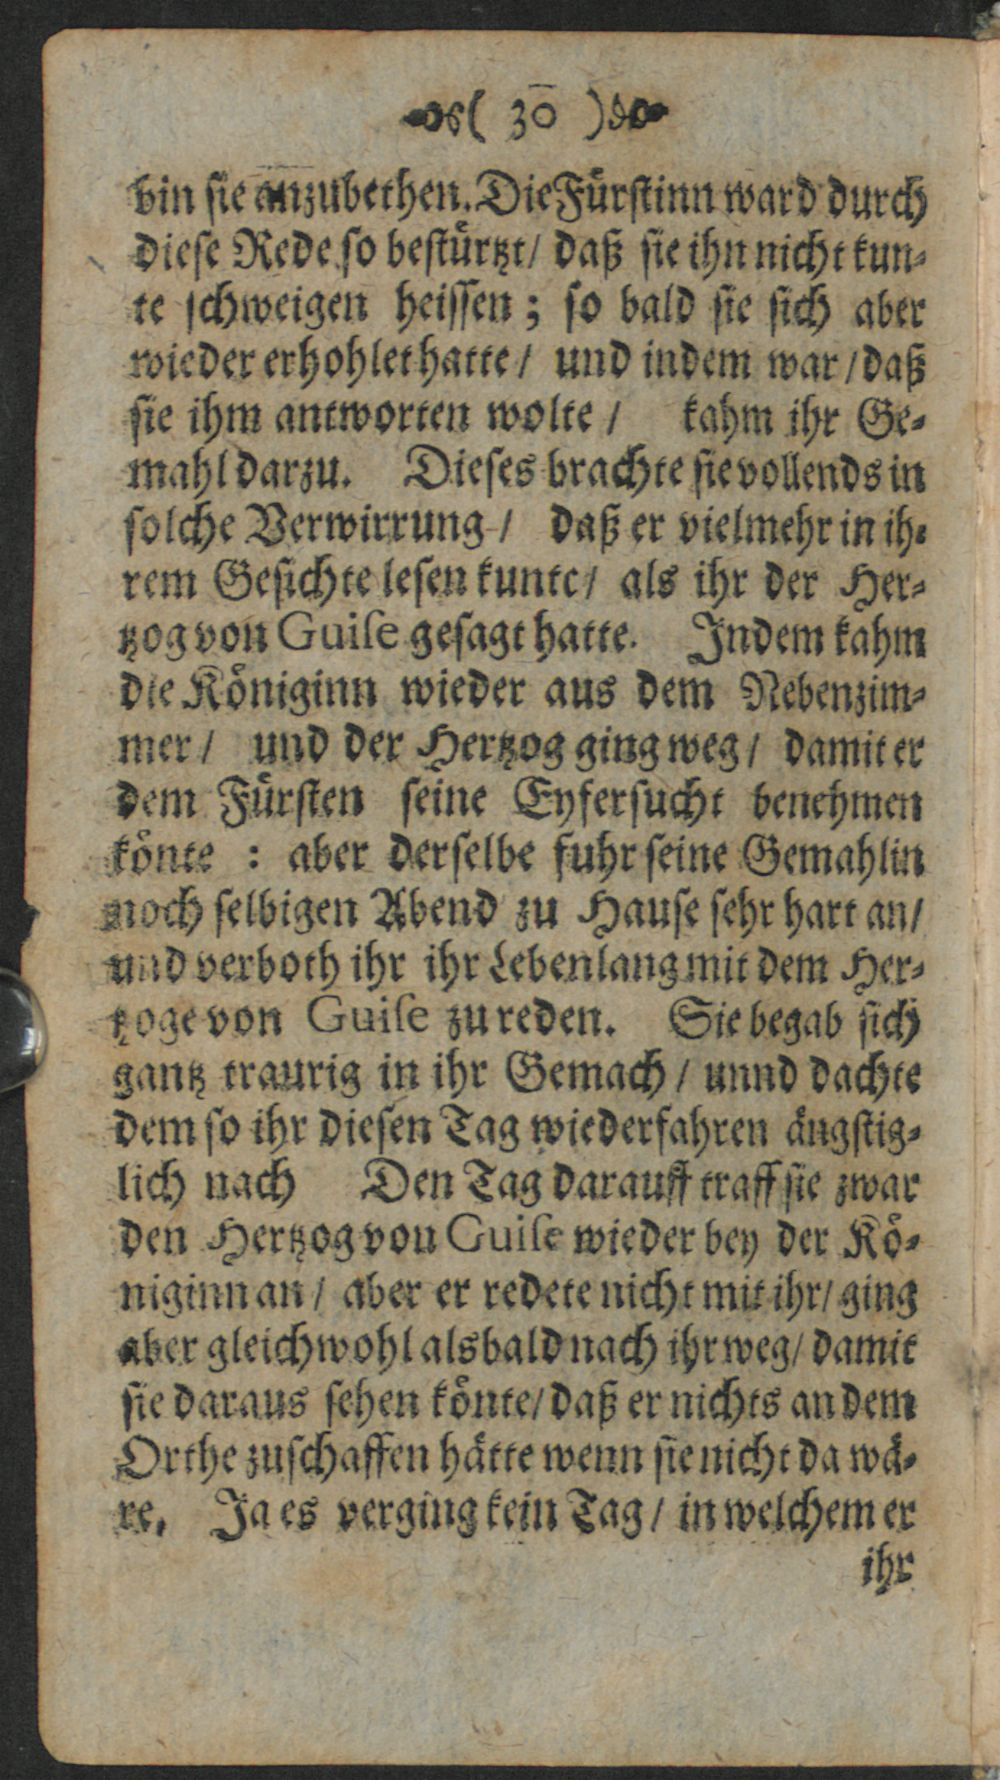 ( 30 )
bin sie anzubethen. Die Fürstinn ward durch
diese Rede so bestürtzt/ daß sie ihn nicht kun-
te schweigen heissen; so bald sie sich aber
wieder erhohlet hatte/ und indem war/ daß
sie ihm antworten wolte/ kahm ihr Ge-
mahl darzu. Dieses brachte sie vollends in
solche Verwirrung/ daß er vielmehr in ih-
rem Gesichte lesen kunte/ als ihr der Her-
tzog von Guise gesagt hatte. Indem kahm
die Königinn wieder aus dem Nebenzim-
mer/ und der Hertzog ging weg/ damit er
dem Fürsten seine Eyfersucht benehmen
könte : aber derselbe fuhr seine Gemahlin
noch selbigen Abend zu Hause sehr hart an/
und verboth ihr ihr Lebenlang mit dem Her-
tzoge von Guise zu reden. Sie begab sich
gantz traurig in ihr Gemach/ unnd dachte
dem so ihr diesen Tag wiederfahren ängstig-
lich nach Den Tag darauff traff sie zwar
den Hertzog von Guise wieder bey der Kö-
niginn an/ aber er redete nicht mit ihr/ ging
aber gleichwohl alsbald nach ihr weg/ damit
sie daraus sehen könte/ daß er nichts an dem
Orthe zuschaffen hätte wenn sie nicht da wä-
re. Ja es verging kein Tag/ in welchem er
ihr